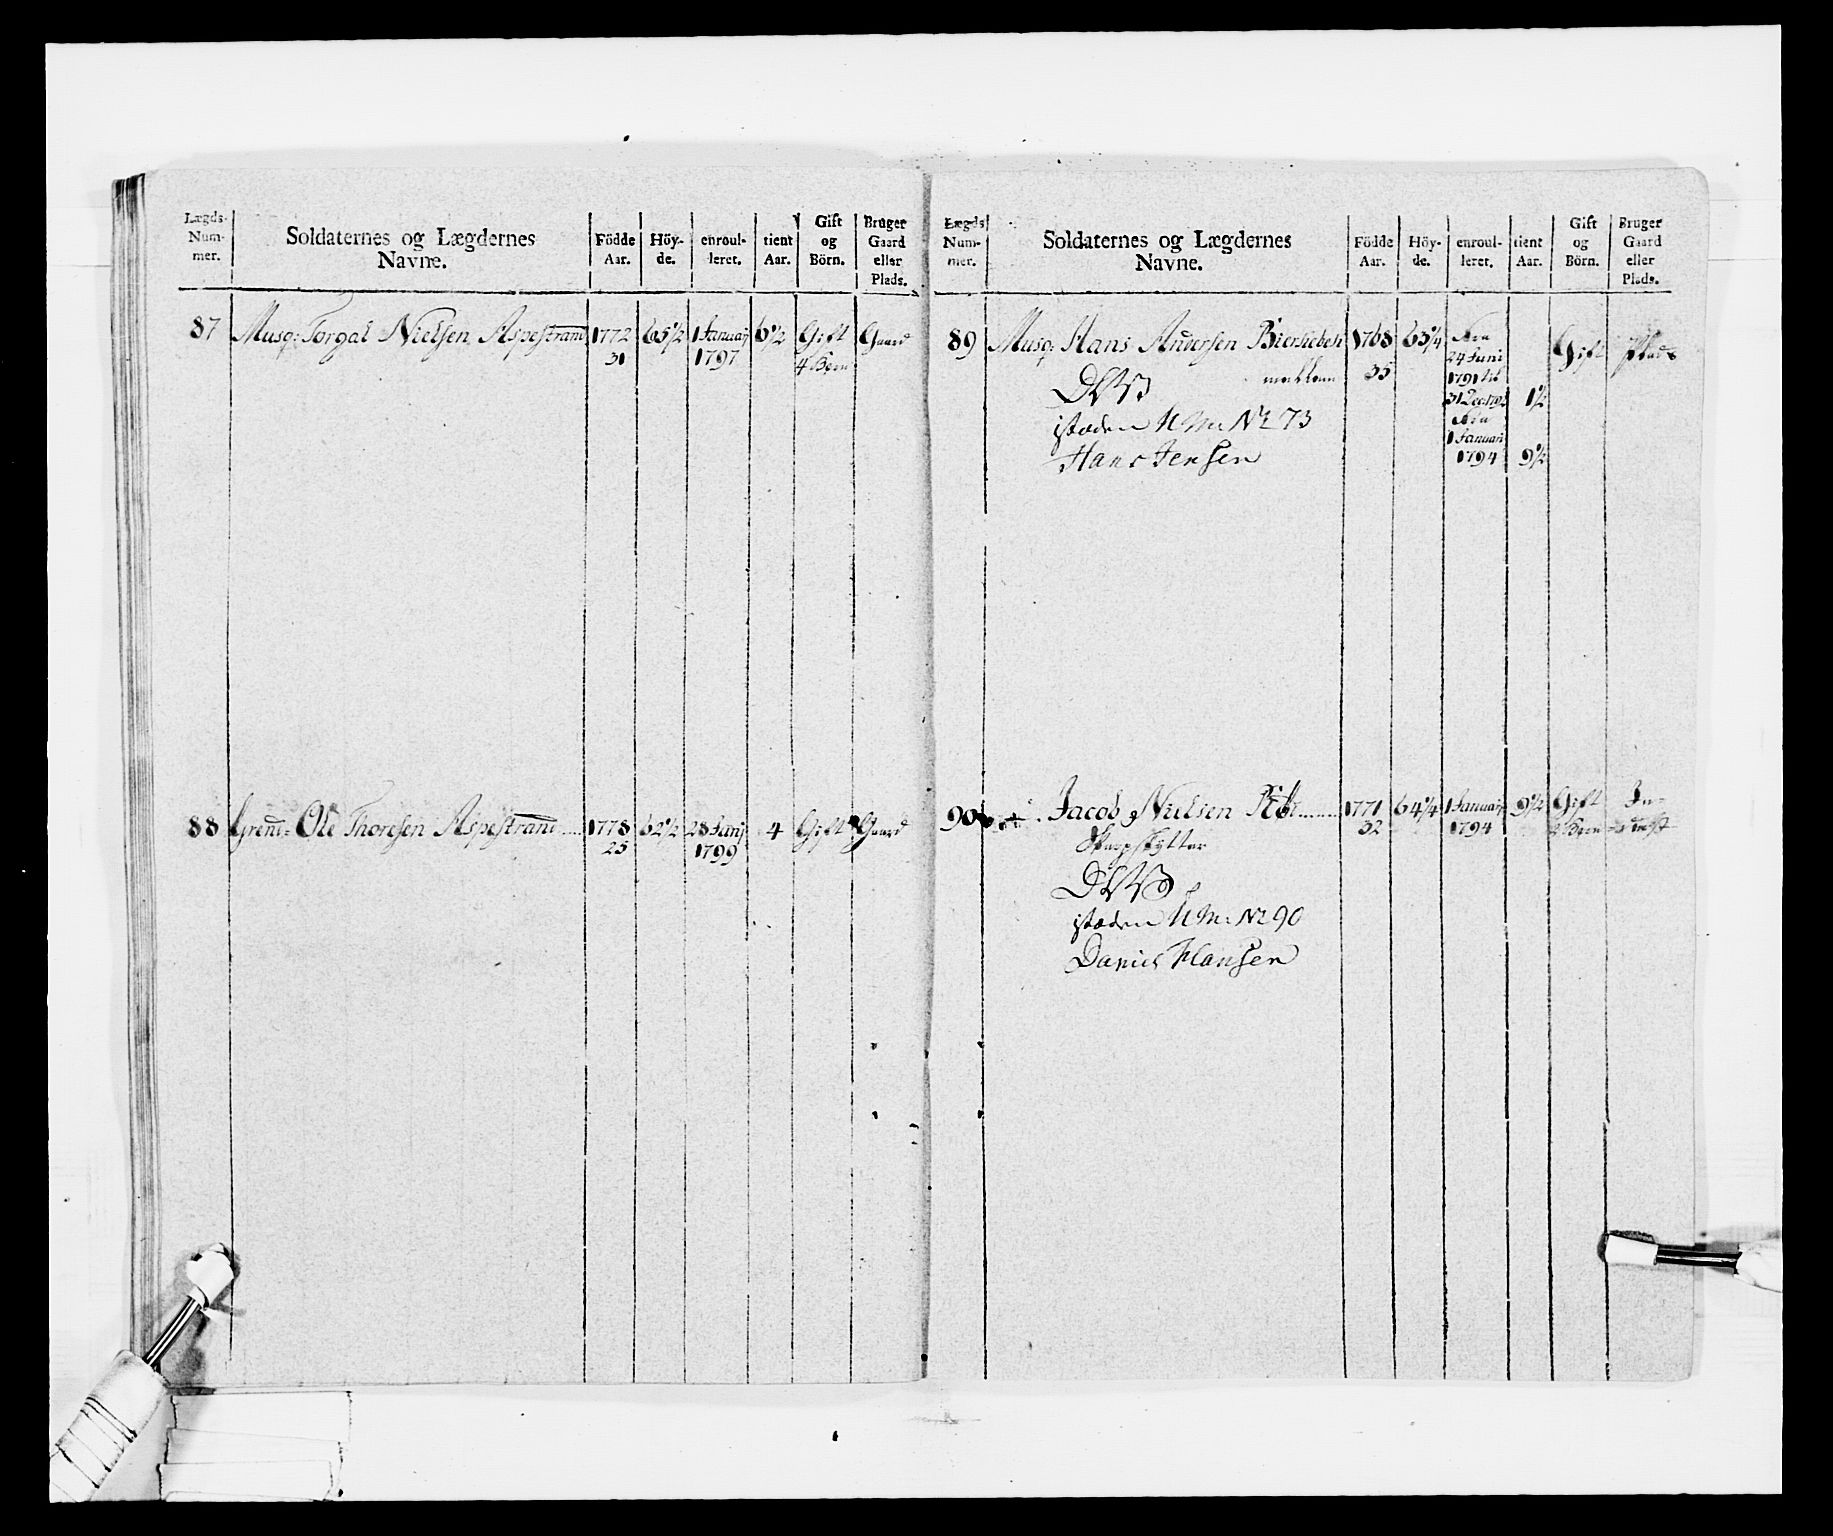 Lægds- Num- mer. Soldaternes og Lægdernes Navne. Födde Aar. Höy- de. enroul- leret. tient Aar. Gift og Börn. Bruger Gaard eller Plads.
87 Musq: Torgal Nielsen Aspestrand 1772 65½ 1 Januarj 6½ Gift Gaard
31 1797 4 Børn
88 Gren: Ole Thoresen Aspestrand 1778 62½ 28 Janj 4 Gift Gaard
25 1799
Lægds Num- mer. Soldaternes og Lægdernes Navne. Födde Aar. Höy- de. enroul- leret. tient Aar. Gift og Börn. Bruger Gaard eller Plads.
89 Musq: Hans Andersen 1768 63¼ Fra Gift Plads
35 24 Juni
1791 til
31 Dec 1792 1½
istæden N M: No 73 Fra
1 Januari
Hans Jensen 1794 9½
90 Jacob Nielsen 1771 64¼ 1 Januarj 9½ Gift In-
32 1794 2 Børn derst
Skarpskytter
istæden N M: No 90
Daniel Hansen